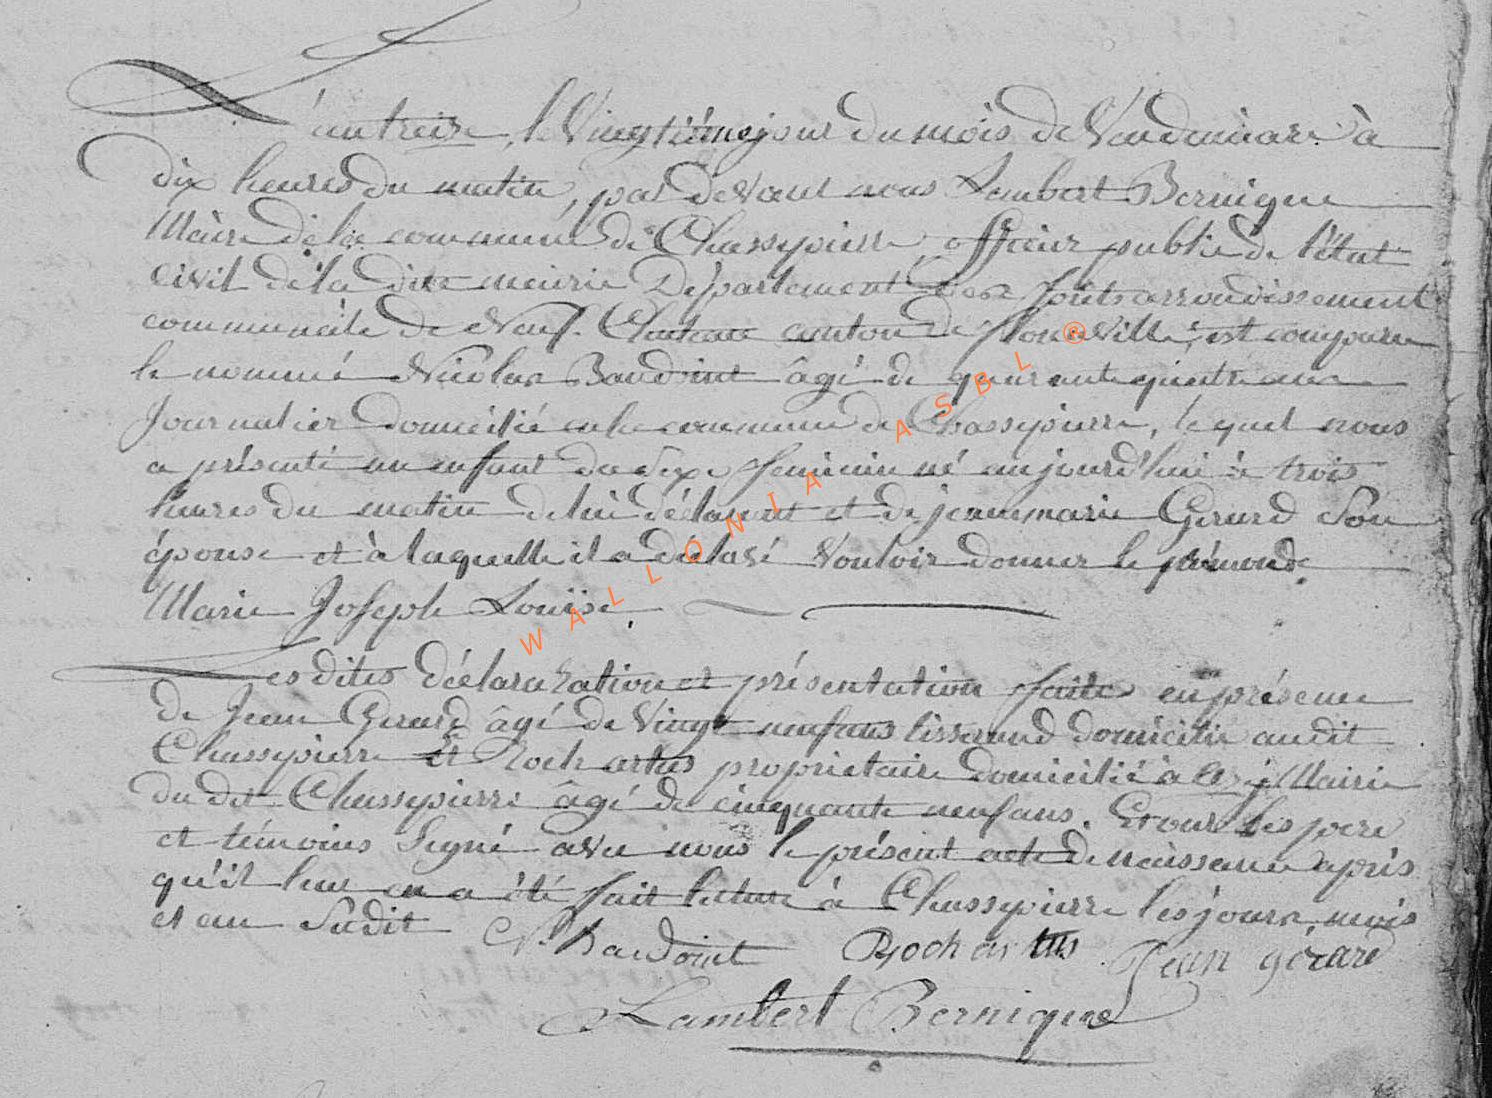 L'an treize, le Vingtième jour du mois de Vendemiare à
dix heures du matin, par devant nous Lambert Bernique
Maire de la commune de Chassepierre officier public de l'état
civil de la dite mairie Département des forêts arrondissement
communale de Neuf-Chateau canton de florenville, est comparu
le nommé Nicolas Baudoint âgé de quarante quatre ans
Journalier domicilié en la commune de Chassepierre, le quel nous
a présenté un enfant du sexe feminin né aujourd'hui à trois
heures du matin de lui déclarant et de jeanne marie Gerard Son
épouse et à laquelle il a déclaré Vouloir donner le prénoms
Marie Joseph Louise.
Les dites déclarration et présentation faite en présence
de Jean Gerard âgé de Vingt neuf ans tisserand domicilié audit
Chassepierre et Roch artus proprietaire domicilié à Mairie
du dit Chassepierre âgé de cinquante neuf ans. Et ont les pere
et témoins Signé avec nous le présent acte de naissance après
qu'il leur en a été fait lecture à Chassepierre les jours, mois
et an Sudit N. Baudoint Roch artus Jean gerard
Lambert Bernique
WALLONIA ASBL ®